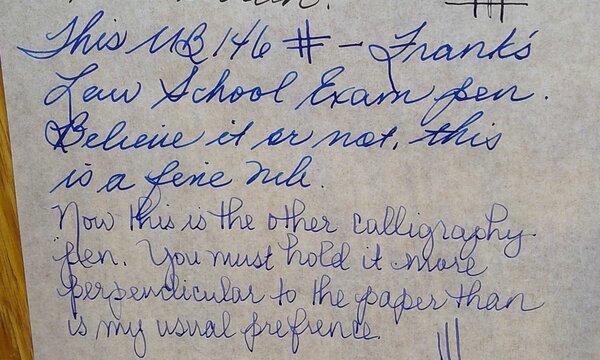 This MB 146 # - Frank's
Law School Exam pen.
Believe it or not, this
is a fine nib.
Now this is the other calligraphy
pen. You must hold it more
perpendicular to the paper than
is my usual prefrence.